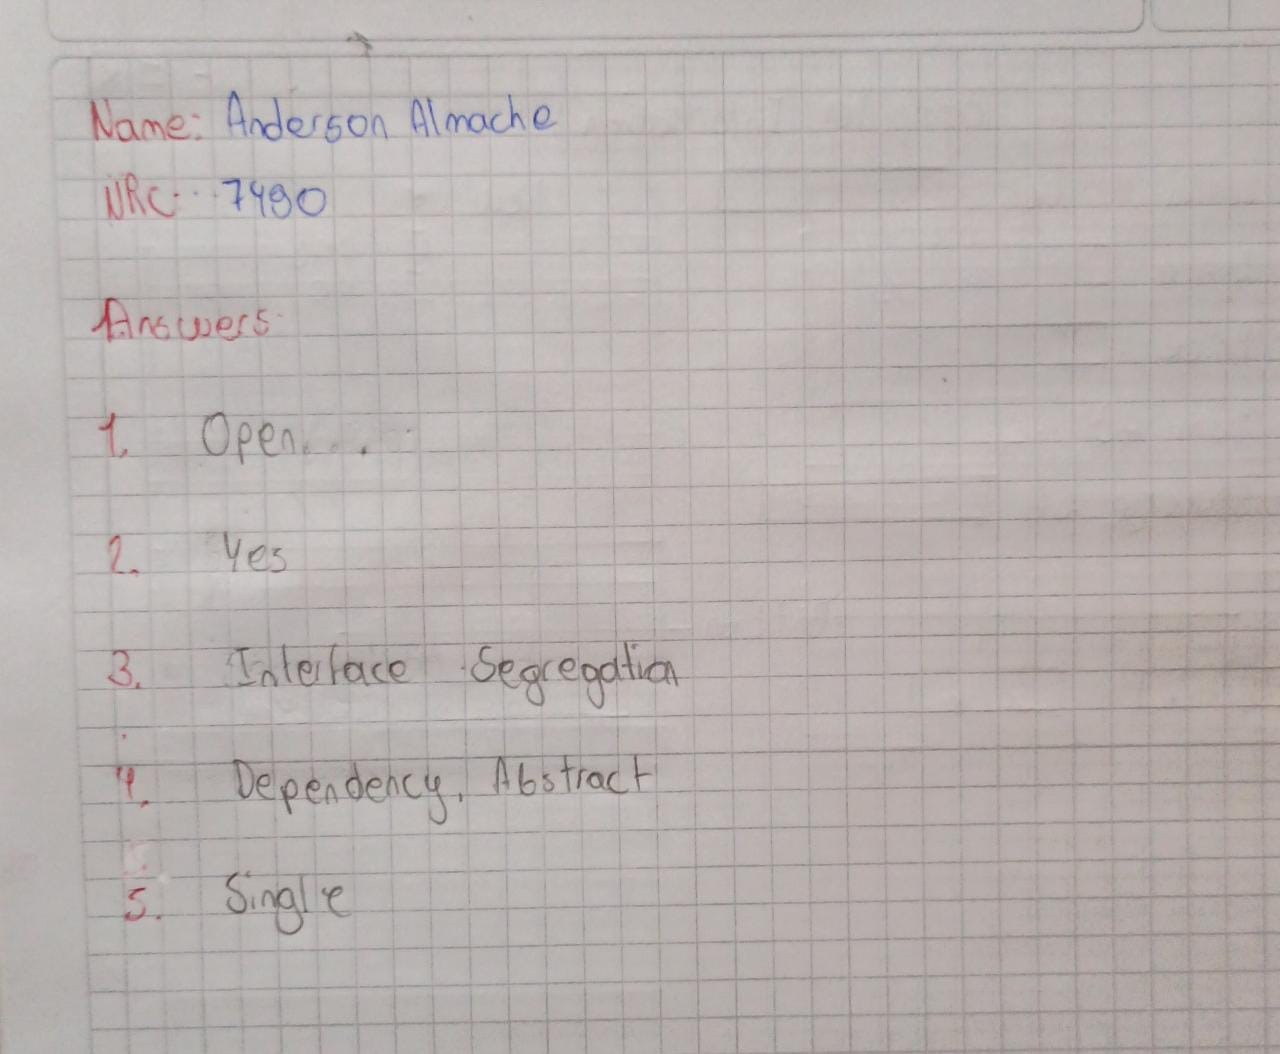 Name: Anderson Almache
NRC: 7490
Answers
1. Open....
2. Yes
3. Interface Segregation
4. Dependency, Abstract
5. Single